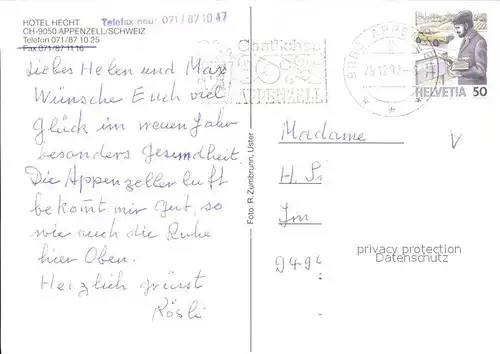 HOTEL HECHT
CH-9050 APPENZELL/SCHWEIZ
Telefon 071/87 10 25
Fax 071/87 11 16
Telefax neu: 071/87 10 47
Liebes Helen und Max
Wünsche Euch viel
Glück im neuen Jahr
besonders Gesundheit
Die Appenzeller luft
bekommt mir gut, so
wie auch die Ruhe
hier Oben.
Herzlich grüsst
Rösli
Foto: R. Zumbrunn, Uster
Gastliches
APPENZELL
9050 APPE
HELVETIA 50
Madame
H. Si
Im
949
V
privacy protection
Datenschutz